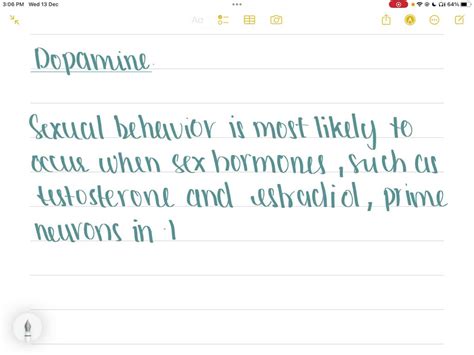 3:06 PM Wed 13 Dec
64%
Aa
Dopamine.
Sexual behavior is most likely to
occur when sex hormones, such as
testosterone and estradiol, prime
neurons in